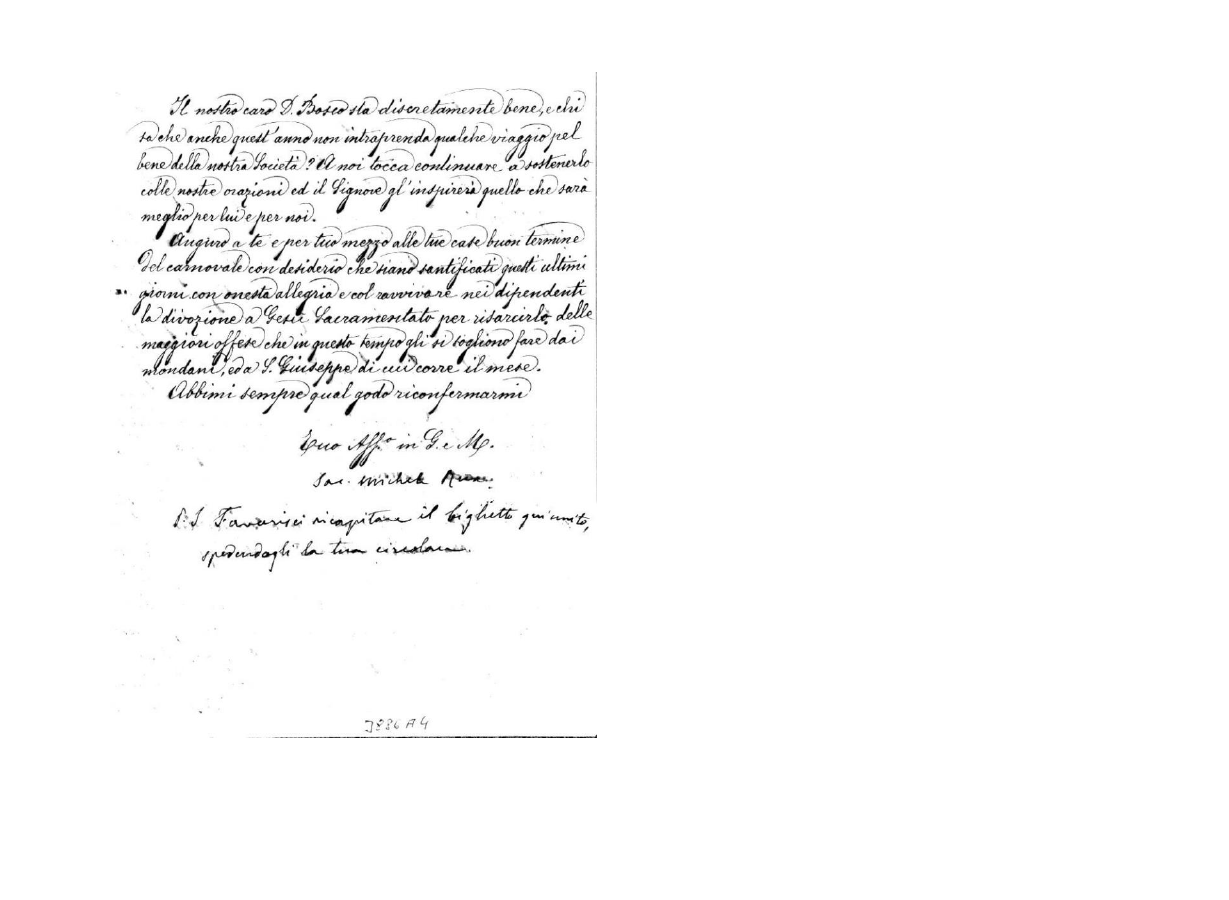 Il nostro caro D. Bosco sta discretamente bene, e chi
sa che anche quest'anno non intraprenda qualche viaggio pel
bene della nostra Società? A noi tocca continuare a sostenerlo
colle nostre orazioni ed il Signore gl'inspirerà quello che sarà
meglio per lui e per noi.
Auguro a te e per tuo mezzo alle tue case buon termine
del carnovale con desiderio che siano santificati questi ultimi
giorni con onesta allegria e col ravvivare nei dipendenti
la divozione a Gesù Sacramentato per risarcirlo delle
maggiori offese che in questo tempo gli si sogliono fare dai
mondani, ed a S. Giuseppe di cui corre il mese.
Abbimi sempre qual godo riconfermarmi
Tuo Aff.o in G. e M.
Sac. Michele Rua
P.S. Favorisci ricapitare il biglietto qui unito,
spedendogli la tua circolare.
J886A4